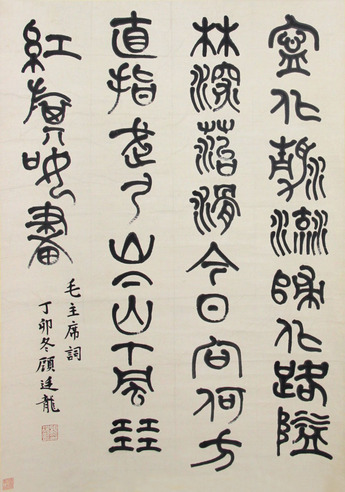 寧化清流歸化路隘
林深苔滑今日向何方
直指武夷山下山下風展
紅旗如畫
毛主席詞
丁卯冬顧廷龍